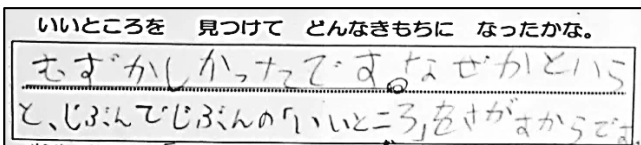 いいところを 見つけて どんなきもちに なったかな。
むずかしかったです。なぜかという
と、じぶんでじぶんの「いいところ」をさがすからです